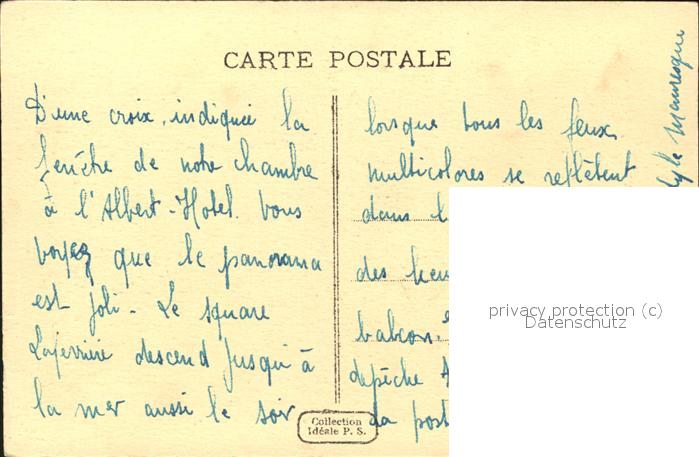 CARTE POSTALE
D'une croix, indiquée la
fenêtre de notre chambre
à l'Albert-Hotel. Vous
voyez que le panorama
est joli - Le square
Laferrière descend jusqu'à
la mer aussi le soir
lorsque tous les feux
multicolores se reflètent
dans l
des heu
balcon.
depêche
la post
style Mauresque
Collection
Idéale P. S.
privacy protection (c)
Datenschutz